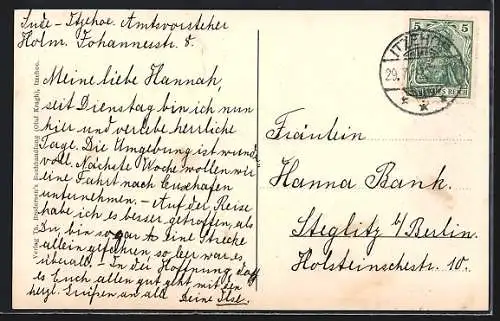 Sude - Itzehoe. Amtsvorsteher
Holm. Johannesstr. 8.
Meine liebe Hannah,
seit Dienstag bin ich nun
hier und verlebe herrliche
Tage. Die Umgebung ist wunder
voll. Nächste Woche wollen wir
eine Fahrt nach Cuxhafen
unternehmen. - Auf der Reise
habe ich es besser getroffen, als
Du, bin sogar eine Strecke
allein gefahren, so leer war es
überall. - In der Hoffnung, daß
es Euch allen gut geht mit den
herzl. Grüßen an alle Deine Ilse.
Verlag Th. Brodersen's Buchhandlung (Olaf Kragh), Itzehoe.
5 5
ITZEHOE
29.
DEUTSCHES REICH
Fräulein
Hanna Bank.
Steglitz b/Berlin.
Holsteinschestr. 10.